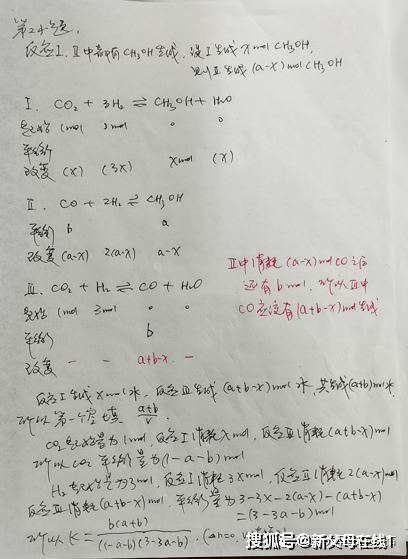 第2小题.
反应Ⅰ、Ⅱ中都有CH3OH生成, 设Ⅰ生成xmolCH3OH,
则Ⅱ生成(a-x)molCH3OH
Ⅰ. CO2 + 3H2 ⇌ CH3OH + H2O
起始 1mol 3mol 0 0
平衡
改变 (x) (3x) xmol (x)
Ⅱ. CO + 2H2 ⇌ CH3OH
平衡 b a
改变 (a-x) 2(a-x) a-x
Ⅱ中消耗(a-x)molCO之后
还有b mol. 所以Ⅲ中
CO应该有(a+b-x)mol生成
Ⅲ. CO2 + H2 ⇌ CO + H2O
起始 1mol 3mol 0 0
平衡 b
改变 - - a+b-x -
反应Ⅰ生成xmol水, 反应Ⅲ生成(a+b-x)mol水, 共生成(a+b)mol水
所以第一个空填 (a+b)/V.
CO2起始量为1mol, 反应Ⅰ消耗xmol, 反应Ⅲ消耗(a+b-x)mol
所以CO2平衡量为(1-a-b)mol
H2起始量为3mol, 反应Ⅰ消耗3xmol, 反应Ⅱ消耗2(a-x)mol
反应Ⅲ消耗(a+b-x)mol. 平衡量为3-3x-2(a-x)-(a+b-x)
=(3-3a-b)mol
所以K= b(a+b)/(1-a-b)(3-3a-b).
搜狐号@新父母在线T